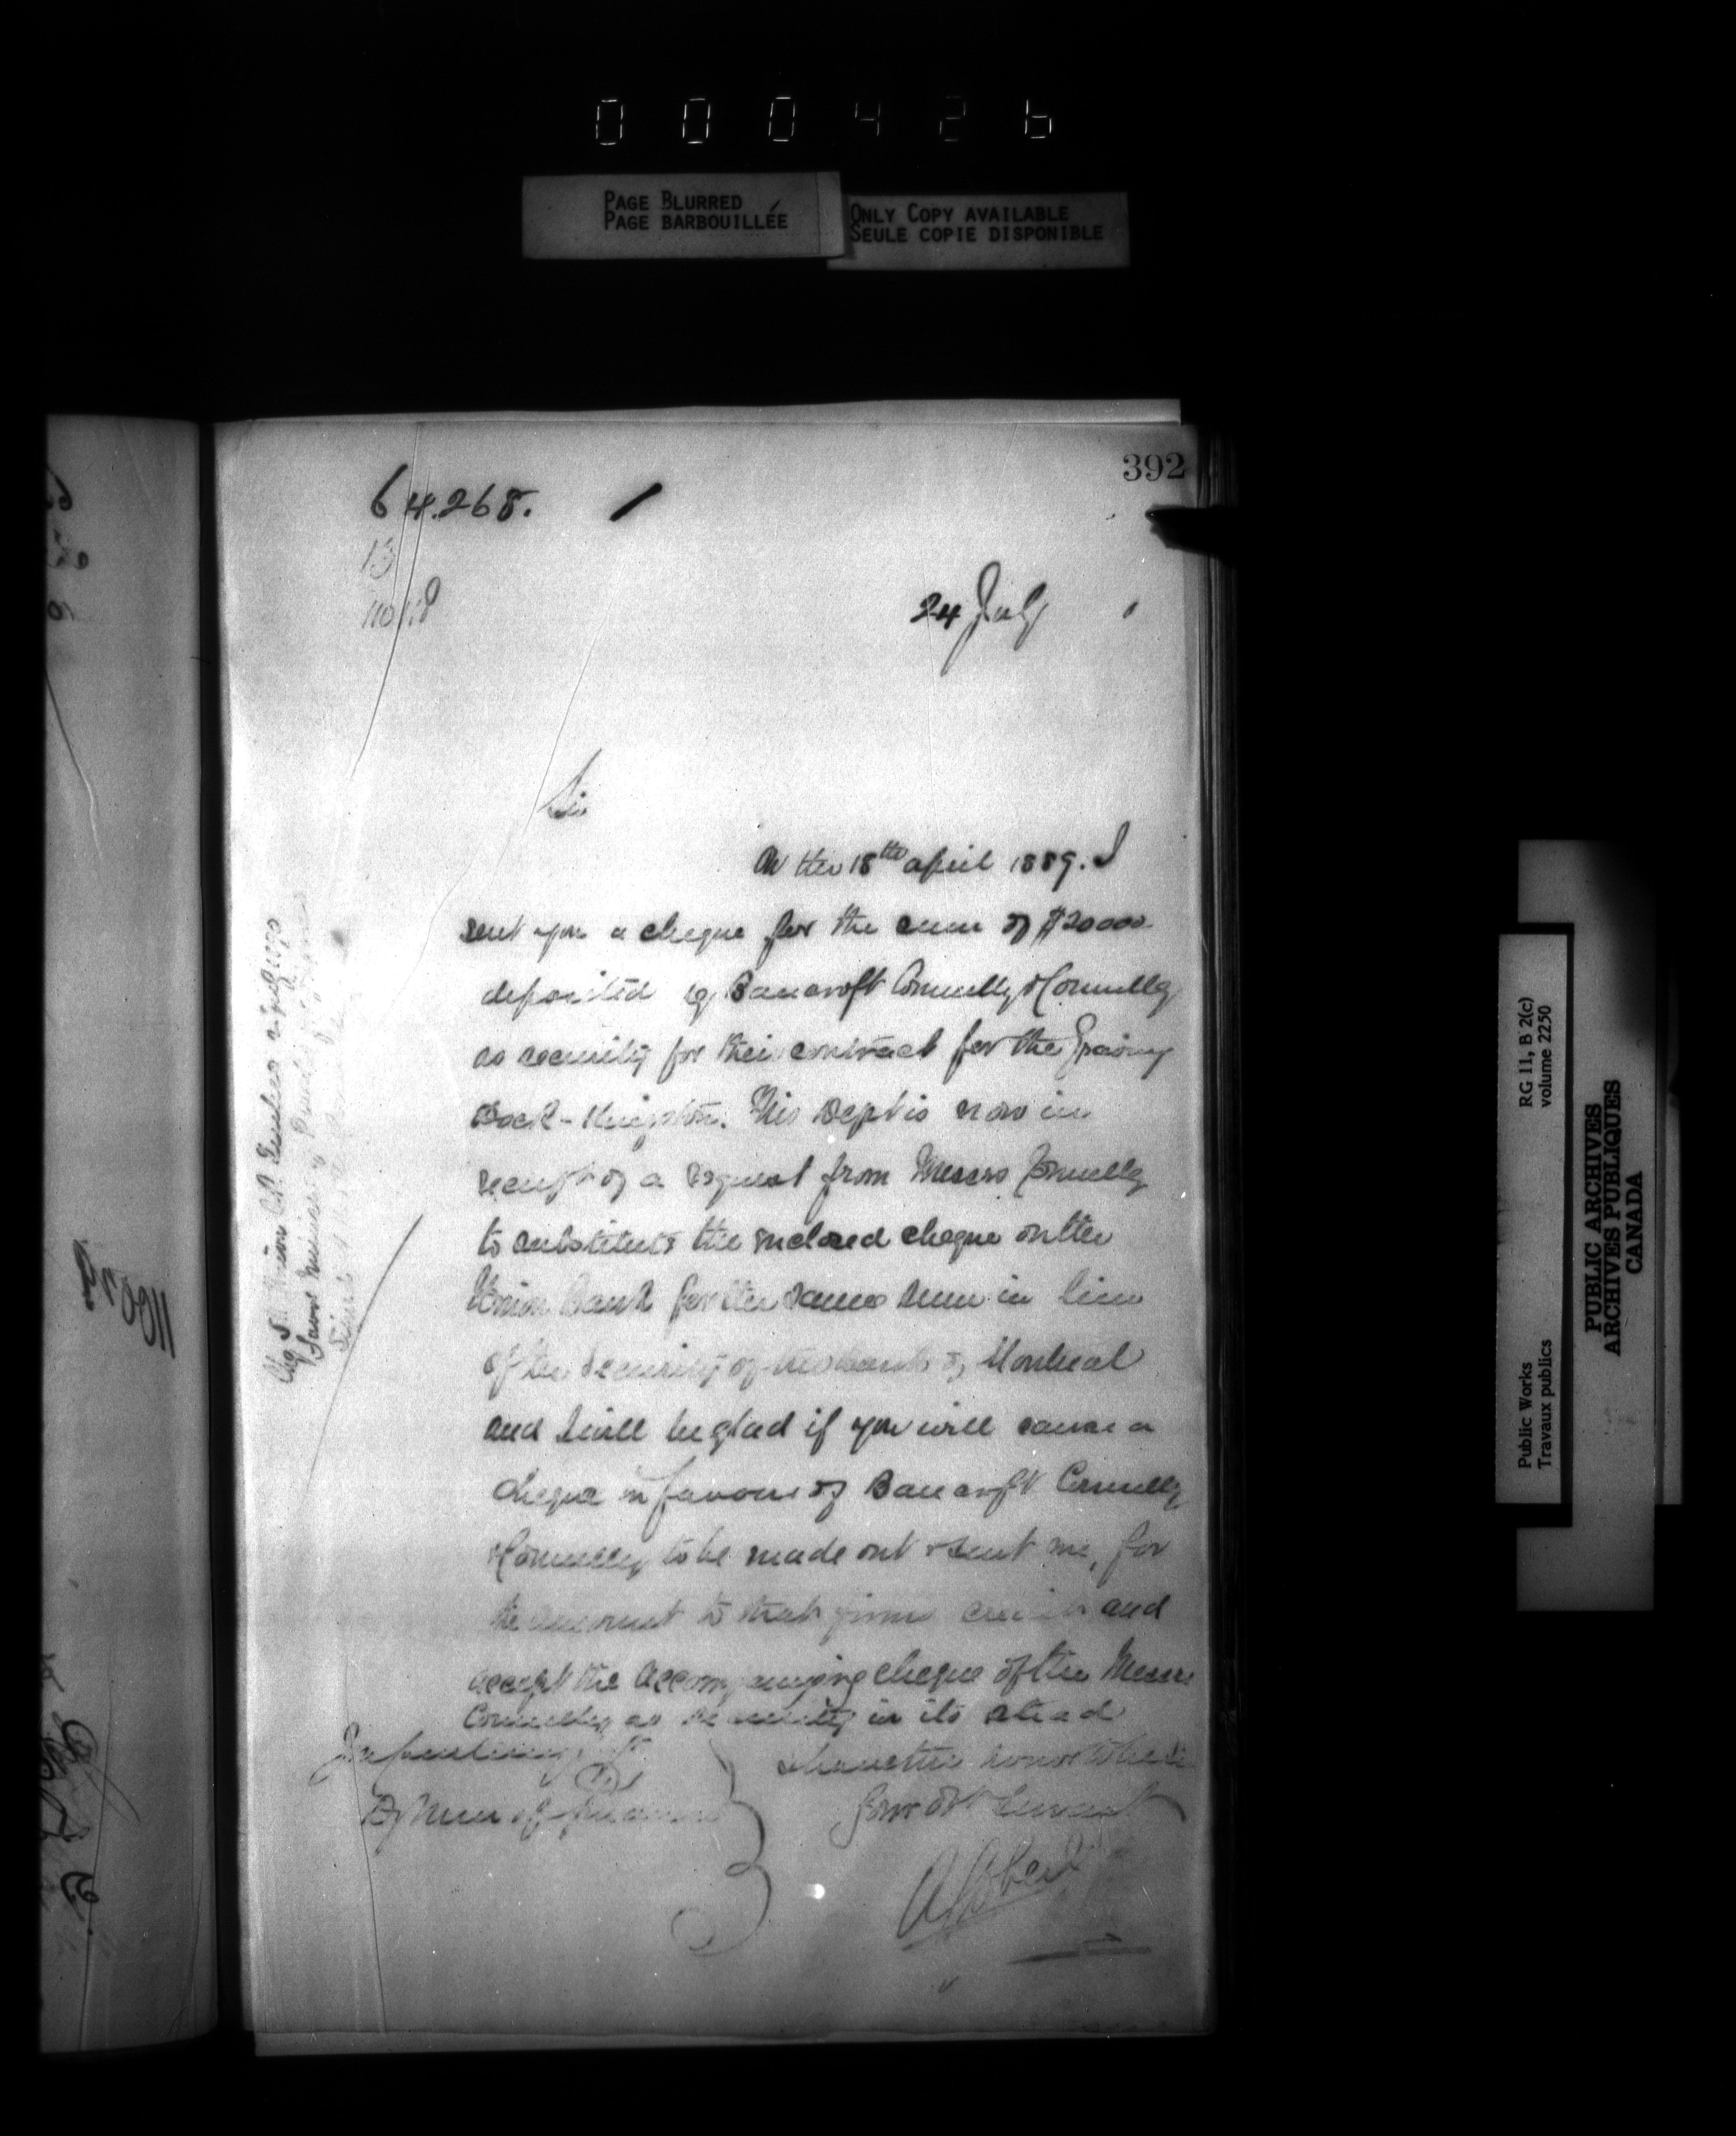 000426
PAGE BLURRED
PAGE BARBOUILLÉE
ONLY COPY AVAILABLE
SEULE COPIE DISPONIBLE
392
64.268.
13
24 July
Sir
On the 18th April 1889. I
sent you a cheque for the sum of $20000
deposited by Bancroft Connolly & Connolly
as security for their contract for the Graving
Dock - Kingston. This Dept is now in
receipt of a request from Messrs Connolly
to substitute the enclosed cheque on the
Union Bank for the same sum in lieu
of the security of the Bank of Montreal
and I will be glad if you will cause a
cheque in favour of Bancroft Connolly
& Connolly to be made out & sent me, for
the amount to that firms credit and
accept the accompanying cheque of the Messrs
Connolly as security in its stead
I have the honor to be Sir
Your obt Servant
Dy Min of Finance
Public Works
Travaux publics
RG 11, B 2(c)
volume 2250
PUBLIC ARCHIVES
ARCHIVES PUBLIQUES
CANADA